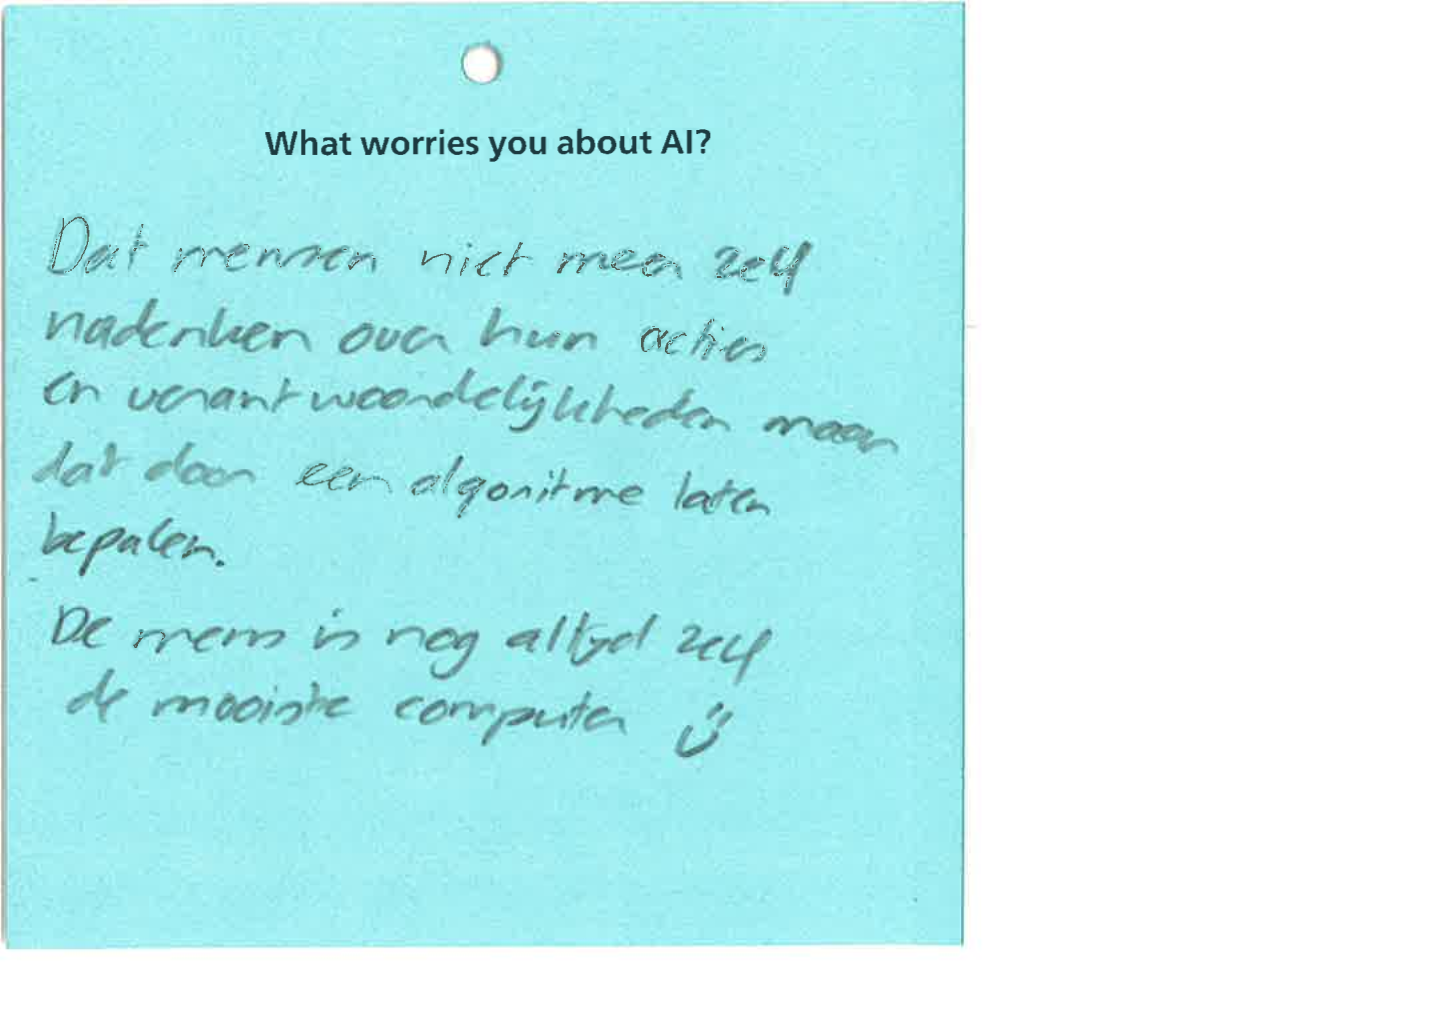 What worries you about AI?
Dat mensen niet meer zelf
nadenken over hun acties
en verantwoordelijkheden maar
dat door een algoritme laten
bepalen.
De mens is nog altijd zelf
de mooiste computer ü